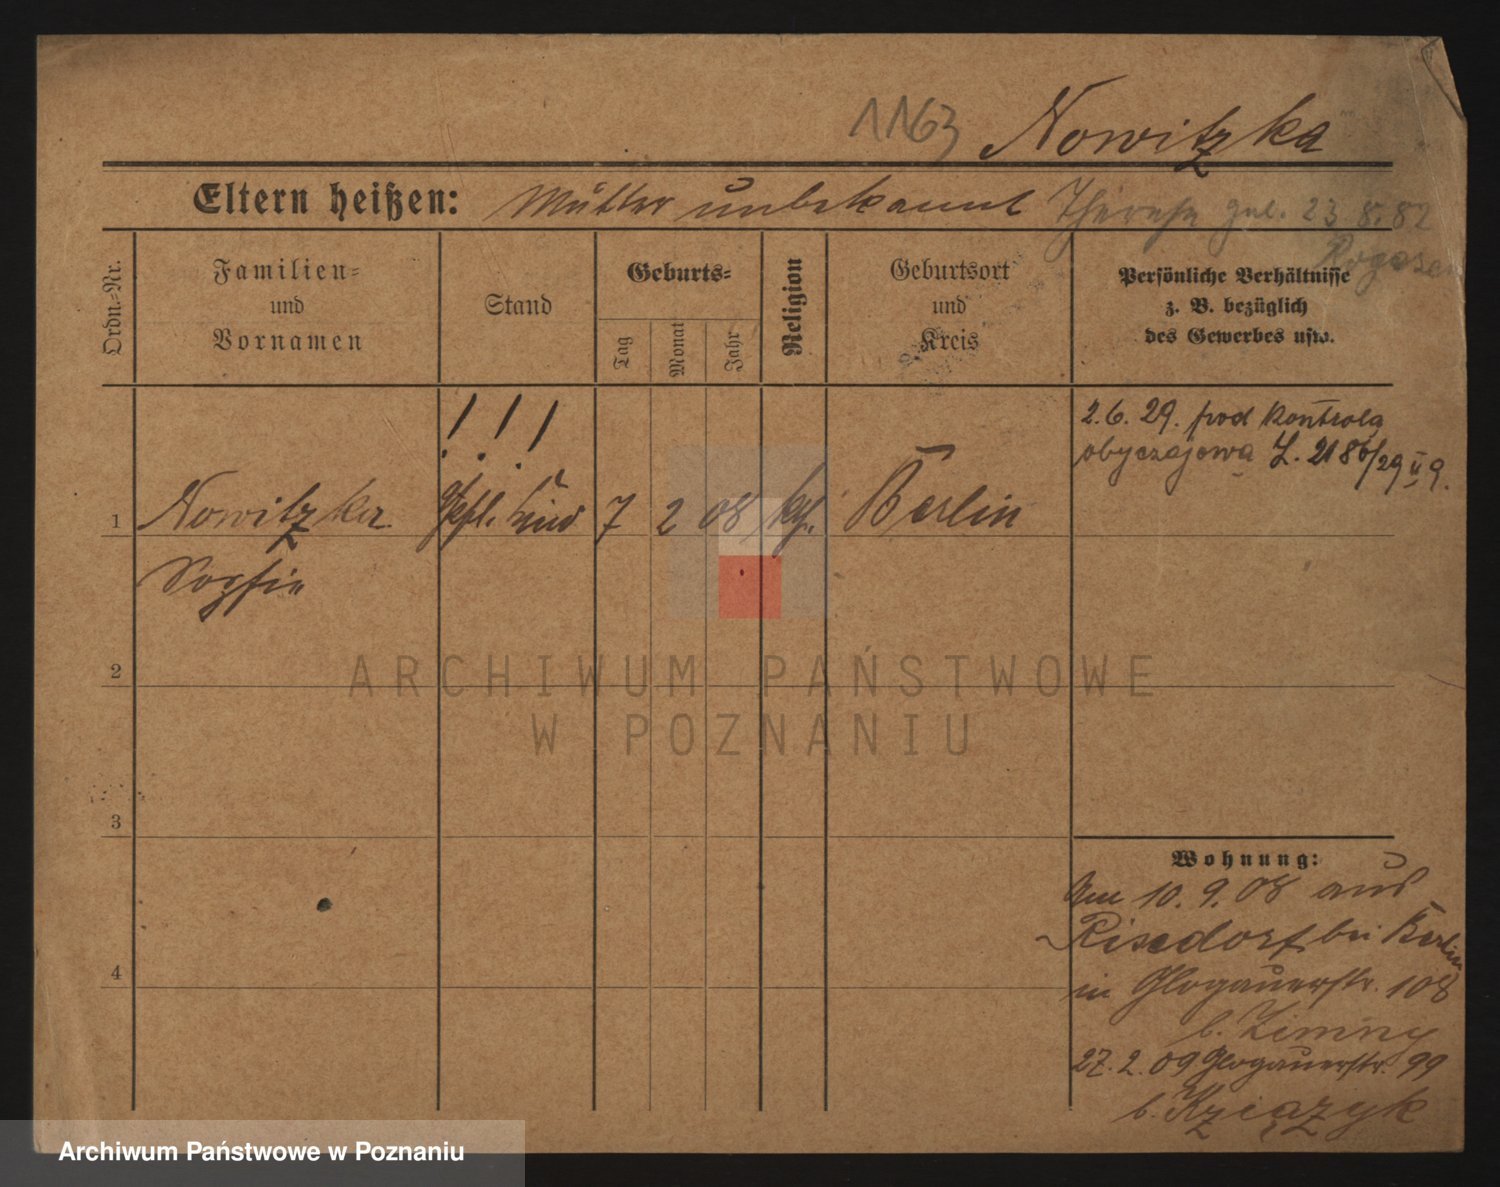 1163 Nowitzka
Eltern heißen: Mutter unbekannt Therese gel. 23 8. 82
Rogasen
Ordn.-Nr.
Familien-
und
Vornamen
Stand
Geburts-
Tag
Monat
Jahr
Religion
Geburtsort
und
Kreis
Persönliche Verhältnisse
z. B. bezüglich
des Gewerbes usw.
! ! !
2. 6. 29. pod kontrolą
obyczajową L. 2186/29 II 9.
1 Nowitzka Pfl. Kind 7 2 08 kth. Berlin
Sophie
2
ARCHIWUM PAŃSTWOWE
W POZNANIU
3
Wohnung:
Am 10. 9. 08 aus
Rixdorf bei Berlin
in Glogauerstr. 108
b. Zimny
4
27. 2. 09 Glogauerstr. 99
b. Księżyk
Archiwum Państwowe w Poznaniu